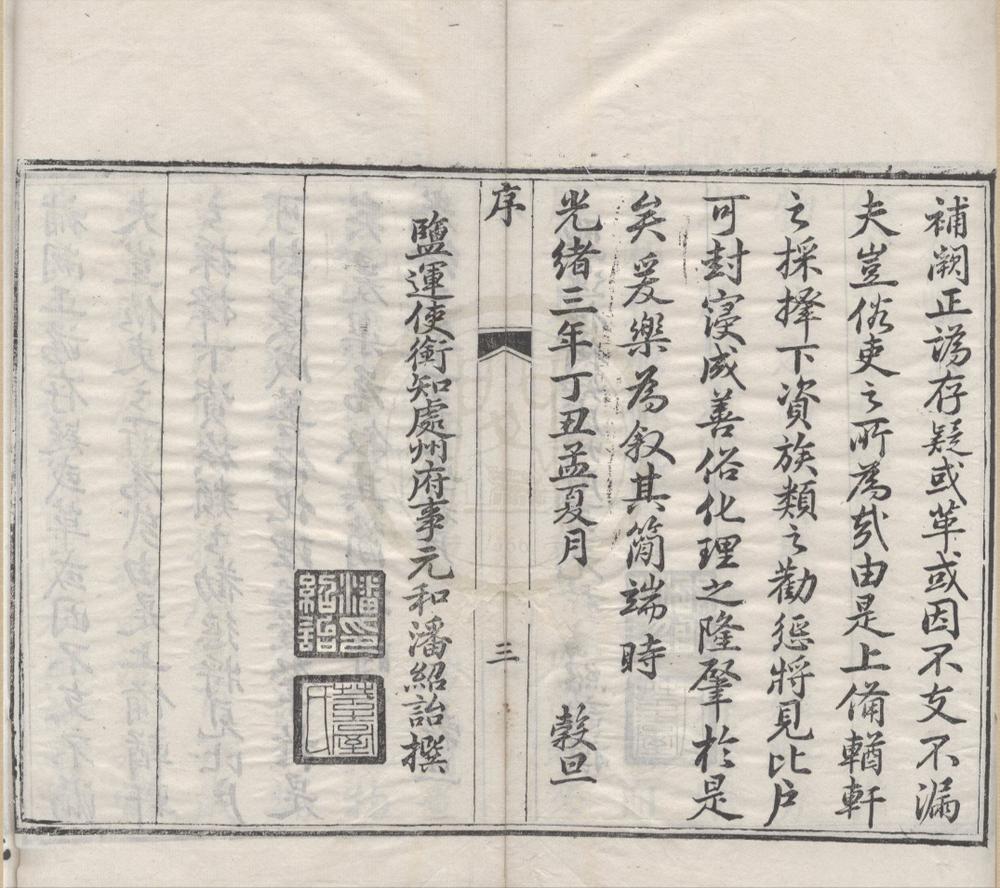 補闕正譌存疑或革或因不支不漏
夫豈俗吏之所為哉由是上備輶軒
之採擇下資族類之勸懲將見比戶
可封寖成善俗化理之隆肇於是
矣爰樂為叙其簡端時
光緒三年丁丑孟夏月 穀旦
序 三
鹽運使銜知處州府事元和潘紹詒撰
潘印紹詒